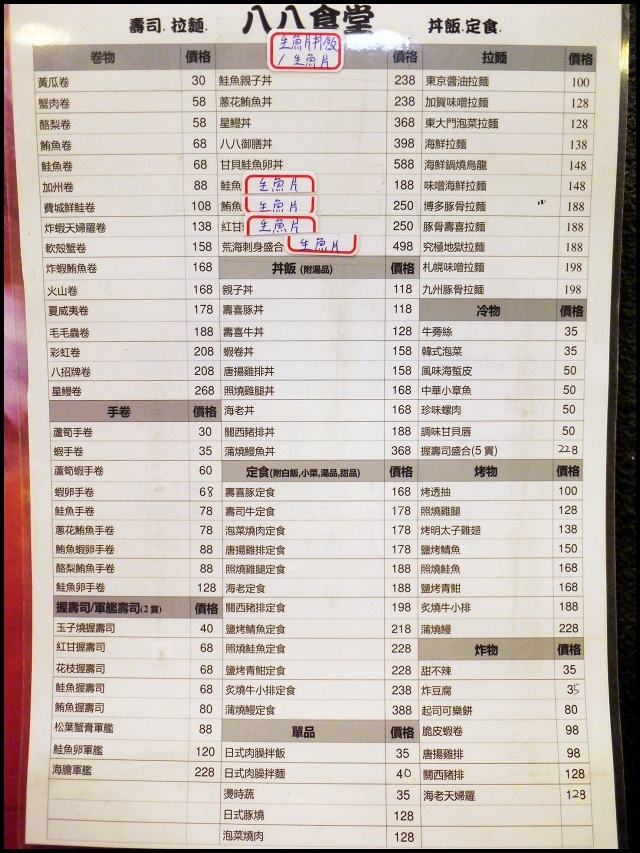 八八食堂
壽司.拉麵.
丼飯.定食.
卷物 價格
黃瓜卷 30
蟹肉卷 58
酪梨卷 58
鮪魚卷 68
鮭魚卷 68
加州卷 88
費城鮮鮭卷 108
炸蝦天婦羅卷 138
軟殼蟹卷 158
炸蝦鮪魚卷 168
火山卷 168
夏威夷卷 178
毛毛蟲卷 188
彩虹卷 208
八招牌卷 208
星鰻卷 268
手卷 價格
蘆筍手卷 30
蝦手卷 35
蘆筍蝦手卷 60
蝦卵手卷 68
鮭魚手卷 78
蔥花鮪魚手卷 78
鮪魚蝦卵手卷 88
酪梨鮪魚手卷 88
鮭魚卵手卷 128
握壽司/軍艦壽司(2 貫) 價格
玉子燒握壽司 40
紅甘握壽司 68
花枝握壽司 68
鮭魚握壽司 68
鮪魚握壽司 80
松葉蟹膏軍艦 88
鮭魚卵軍艦 120
海膽軍艦 228
生魚片丼飯
/生魚片
價格
鮭魚親子丼 238
蔥花鮪魚丼 238
星鰻丼 368
八八御膳丼 398
甘貝鮭魚卵丼 588
鮭魚 生魚片 188
鮪魚 生魚片 250
紅甘 生魚片 250
荒海刺身盛合 生魚片 498
丼飯 (附湯品) 價格
親子丼 118
壽喜豚丼 118
壽喜牛丼 128
蝦卷丼 158
唐揚雞排丼 158
照燒雞腿丼 168
海老丼 168
關西豬排丼 188
蒲燒鰻魚丼 368
定食(附白飯,小菜,湯品,甜品) 價格
壽喜豚定食 168
壽司牛定食 178
泡菜燒肉定食 178
唐揚雞排定食 178
照燒雞腿定食 188
海老定食 188
關西豬排定食 198
鹽烤鯖魚定食 218
照燒鮭魚定食 228
鹽烤青魽定食 228
炙燒牛小排定食 238
蒲燒鰻定食 388
單品 價格
日式肉臊拌飯 35
日式肉臊拌麵 40
燙時蔬 35
日式豚燒 128
泡菜燒肉 128
拉麵 價格
東京醬油拉麵 100
加賀味噌拉麵 128
東大門泡菜拉麵 128
海鮮拉麵 138
海鮮鍋燒烏龍 148
味噌海鮮拉麵 148
博多豚骨拉麵 188
豚骨壽喜拉麵 188
究極地獄拉麵 188
札幌味噌拉麵 198
九州豚骨拉麵 198
冷物 價格
牛蒡絲 35
韓式泡菜 35
風味海蜇皮 50
中華小章魚 50
珍味螺肉 50
調味甘貝唇 50
握壽司盛合(5 貫) 228
烤物 價格
烤透抽 100
照燒雞腿 128
烤明太子雞翅 138
鹽烤鯖魚 150
照燒鮭魚 168
鹽烤青魽 168
炙燒牛小排 188
蒲燒鰻 228
炸物 價格
甜不辣 35
炸豆腐 35
起司可樂餅 80
脆皮蝦卷 98
唐揚雞排 98
關西豬排 128
海老天婦羅 128